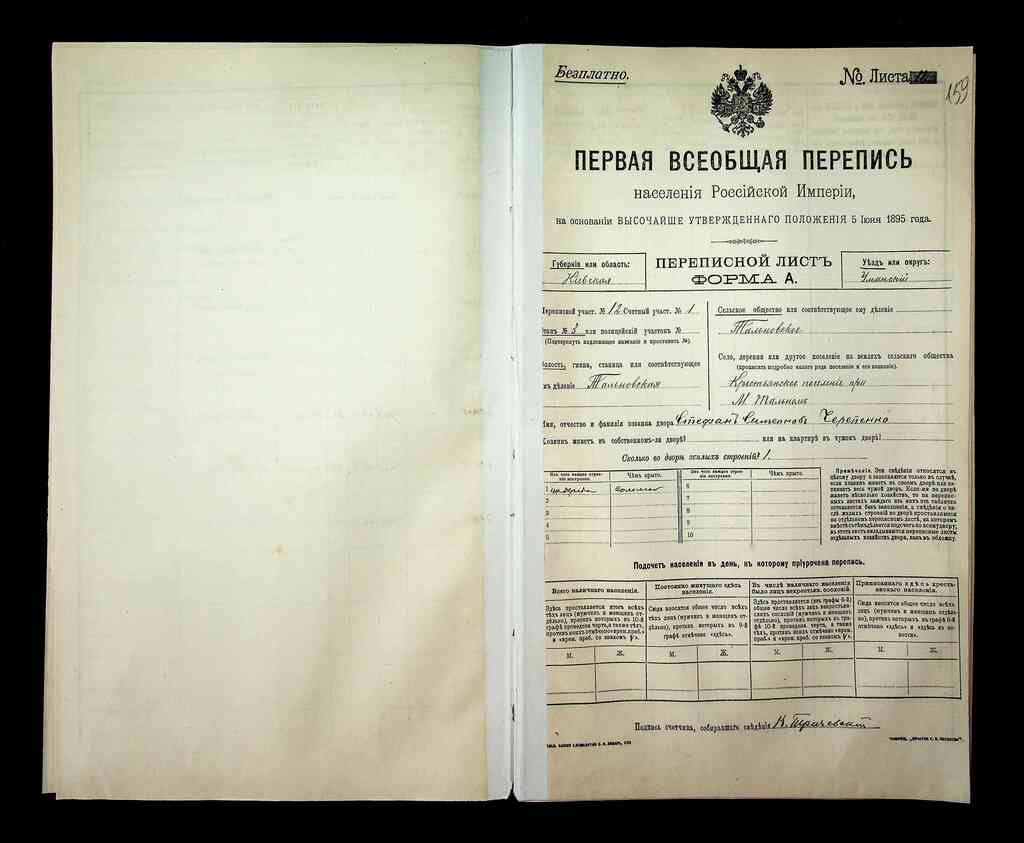 Безплатно.
№ Листа
159
ПЕРВАЯ ВСЕОБЩАЯ ПЕРЕПИСЬ
населенія Россійской Имперіи,
на основаніи ВЫСОЧАЙШЕ УТВЕРЖДЕННАГО ПОЛОЖЕНІЯ 5 Іюня 1895 года.
Губернія или область:
Кіевская
ПЕРЕПИСНОЙ ЛИСТЪ
ФОРМА А.
Уѣздъ или округъ:
Уманскій
Переписной участ. № 12 Счетный участ. № 1
Станъ № 3 или полицейскій участокъ №
(Подчеркнуть надлежащее названіе и проставить №).
Волость, гмина, станица или соотвѣтствующее
имъ дѣленіе Тальновская
Сельское общество или соотвѣтствующее ему дѣленіе
Тальновское
Село, деревня или другое поселеніе на земляхъ сельскаго общества
(прописать подробно какого рода поселеніе и его названіе).
Крестьянское поселеніе при
М. Тальномъ
Имя, отчество и фамилія хозяина двора Стефанъ
Хозяинъ живетъ въ собственномъ-ли дворѣ? или на квартирѣ въ чужомъ дворѣ?
Сколько во дворѣ жилыхъ строеній? 1.
Изъ чего каждое строеніе построено. Чѣмъ крыто. Изъ чего каждое строеніе построено. Чѣмъ крыто.
1 соломою 6
2 7
3 8
4 9
5 10
Примѣчаніе. Эти свѣдѣнія относятся къ
цѣлому двору и записываются только въ случаѣ,
если хозяинъ живетъ въ своемъ дворѣ или нанимаетъ
весь чужой дворъ. Если-же во дворѣ
живетъ нѣсколько хозяйствъ, то на переписныхъ
листахъ каждаго изъ нихъ эта табличка
оставляется безъ заполненія, а свѣдѣнія о числѣ
жилыхъ строеній во дворѣ проставляются
на отдѣльномъ переписномъ листѣ, на которомъ
вмѣстѣ съ тѣмъ дѣлается подсчетъ по всему двору;
въ этотъ листъ вкладываются переписные листы
отдѣльныхъ хозяйствъ двора, какъ въ обложку.
Подсчетъ населенія въ день, къ которому пріурочена перепись.
Всего наличнаго населенія.
Здѣсь проставляется итогъ всѣхъ
тѣхъ лицъ (мужчинъ и женщинъ отдѣльно),
противъ которыхъ въ 10-й
графѣ проведена черта, а также тѣхъ,
противъ коихъ отмѣчено «врем. преб.»
Постоянно живущаго здѣсь населенія.
Сюда вносится общее число всѣхъ
лицъ (мужчинъ и женщинъ отдѣльно),
противъ которыхъ въ 9-й
графѣ отмѣчено «здѣсь».
Въ числѣ наличнаго населенія было лицъ некрестьян. сословій.
Здѣсь проставляется (изъ графы 6-й)
общее число всѣхъ лицъ некрестьянскихъ
сословій (мужчинъ и женщинъ
отдѣльно), противъ которыхъ въ графѣ
10-й проведена черта, а также
тѣхъ, противъ коихъ отмѣчено «врем.
преб.»
Приписаннаго здѣсь крестьянскаго населенія.
Сюда вносится общее число всѣхъ
лицъ (мужчинъ и женщинъ отдѣльно),
противъ которыхъ въ графѣ 8-й
отмѣчено «здѣсь»
М. Ж. М. Ж. М. Ж. М. Ж.
Подпись счетчика, собиравшаго свѣдѣнія